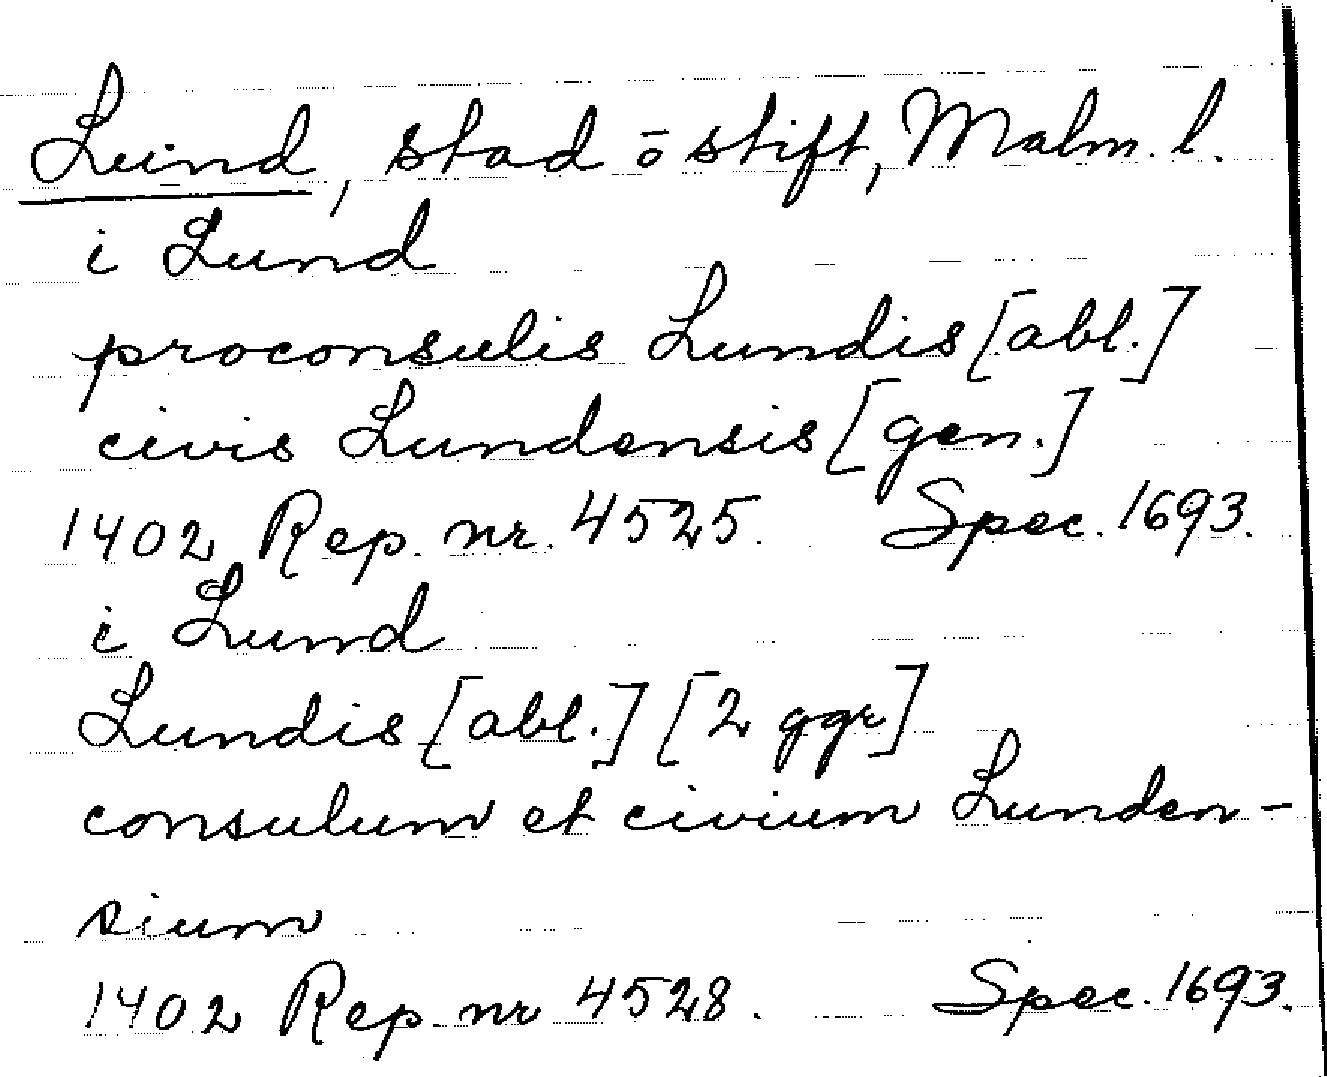 Lund, stad o stift, Malm. l.
i Lund
proconsulis Lundis [abl.]
civis Lundensis [gen.]
1402 Rep. nr. 4525. Spec. 1693.
i Lund
Lundis [abl.] [2 ggr]
consulum et civium Lunden-
sium
1402 Rep. nr 4528. Spec. 1693.